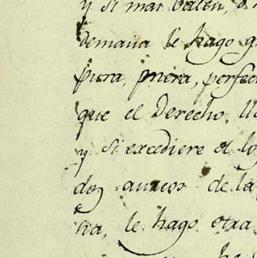 y si mas valen, o
demasia le hago g
pura, mera, perfec
que el Derecho, ll
y si excediere de lo
dos aureos de la
tra, le hago otra